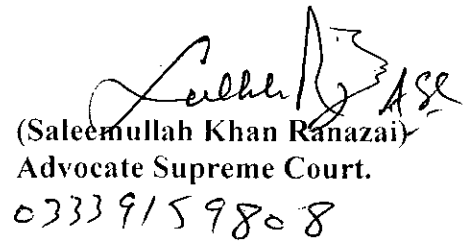 ASC
(Saleemullah Khan Ranazai)
Advocate Supreme Court.
03339159808